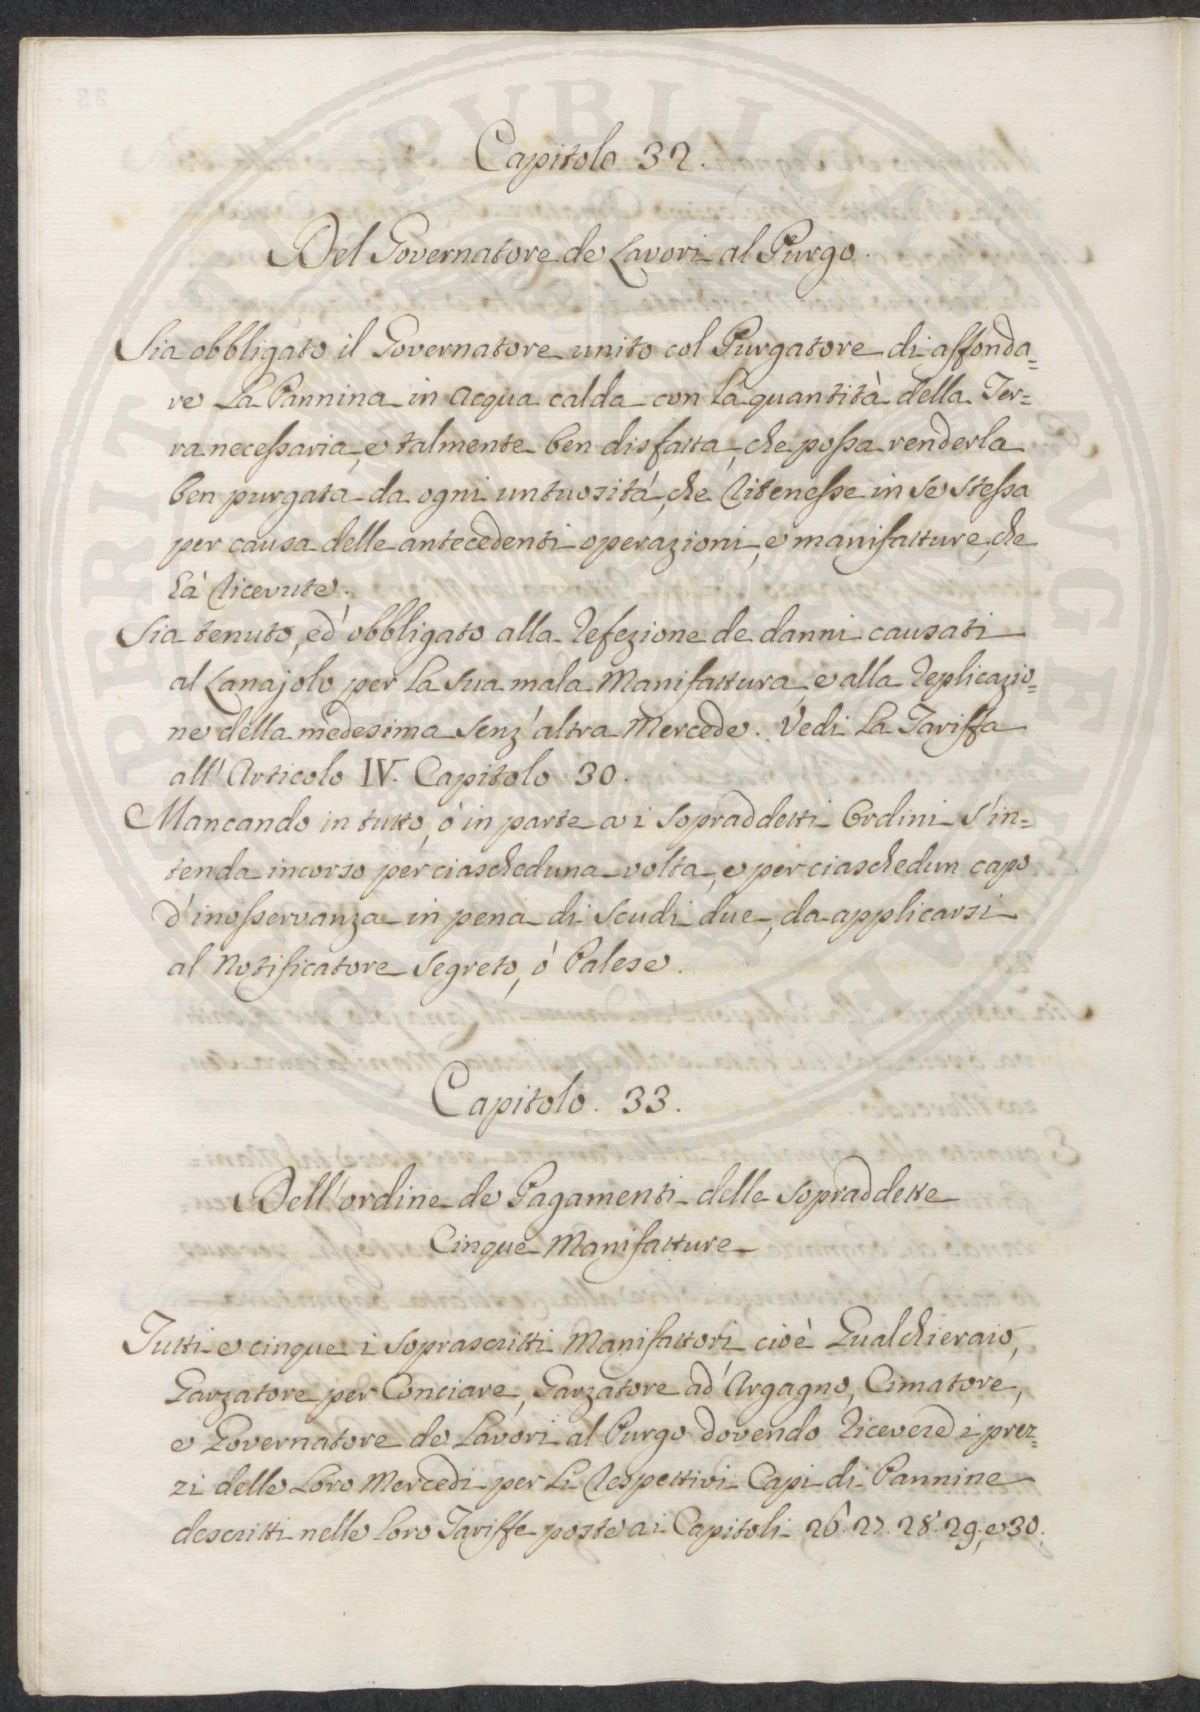 Capitolo 32.
Del Governatore de Lavori al Purgo.
Sia obbligato il Governatore unito col Purgatore di affonda=
re La Pannina in Acqua calda con la quantità della Ter=
ra necessaria, e talmente ben disfatta, che possa renderla
ben purgata da ogni untuosità, che ritenesse in se stessa
per causa delle antecedenti operazioni, e manifatture, che
hà ricevute.
Sia tenuto, ed' obbligato alla refezione de danni causati
al Lanajolo per la sua mala Manifattura, e alla replicazio=
ne della medesima senz' altra Mercede. Vedi la Tariffa
all' Articolo IV. Capitolo 30.
Mancando in tutto, ò in parte a i sopraddetti Ordini s' in=
tenda incorso per ciascheduna volta, e per ciaschedun capo
d' inosservanza in pena di Scudi due, da applicarsi
al Notificatore Segreto, ò Palese.
Capitolo. 33.
Dell' ordine de Pagamenti delle sopraddette
Cinque Manifatture
Tutti e cinque i soprascritti Manifattori cioè Gualchieraio,
Garzatore per Conciare, Garzatore ad' Argagno, Cimatore,
e Governatore de Lavori al Purgo dovendo ricevere i prez=
zi delle Loro Mercedi per li respettivi Capi di Pannine
descritti nelle loro Tariffe poste a i Capitoli 26. 27. 28. 29. e 30.